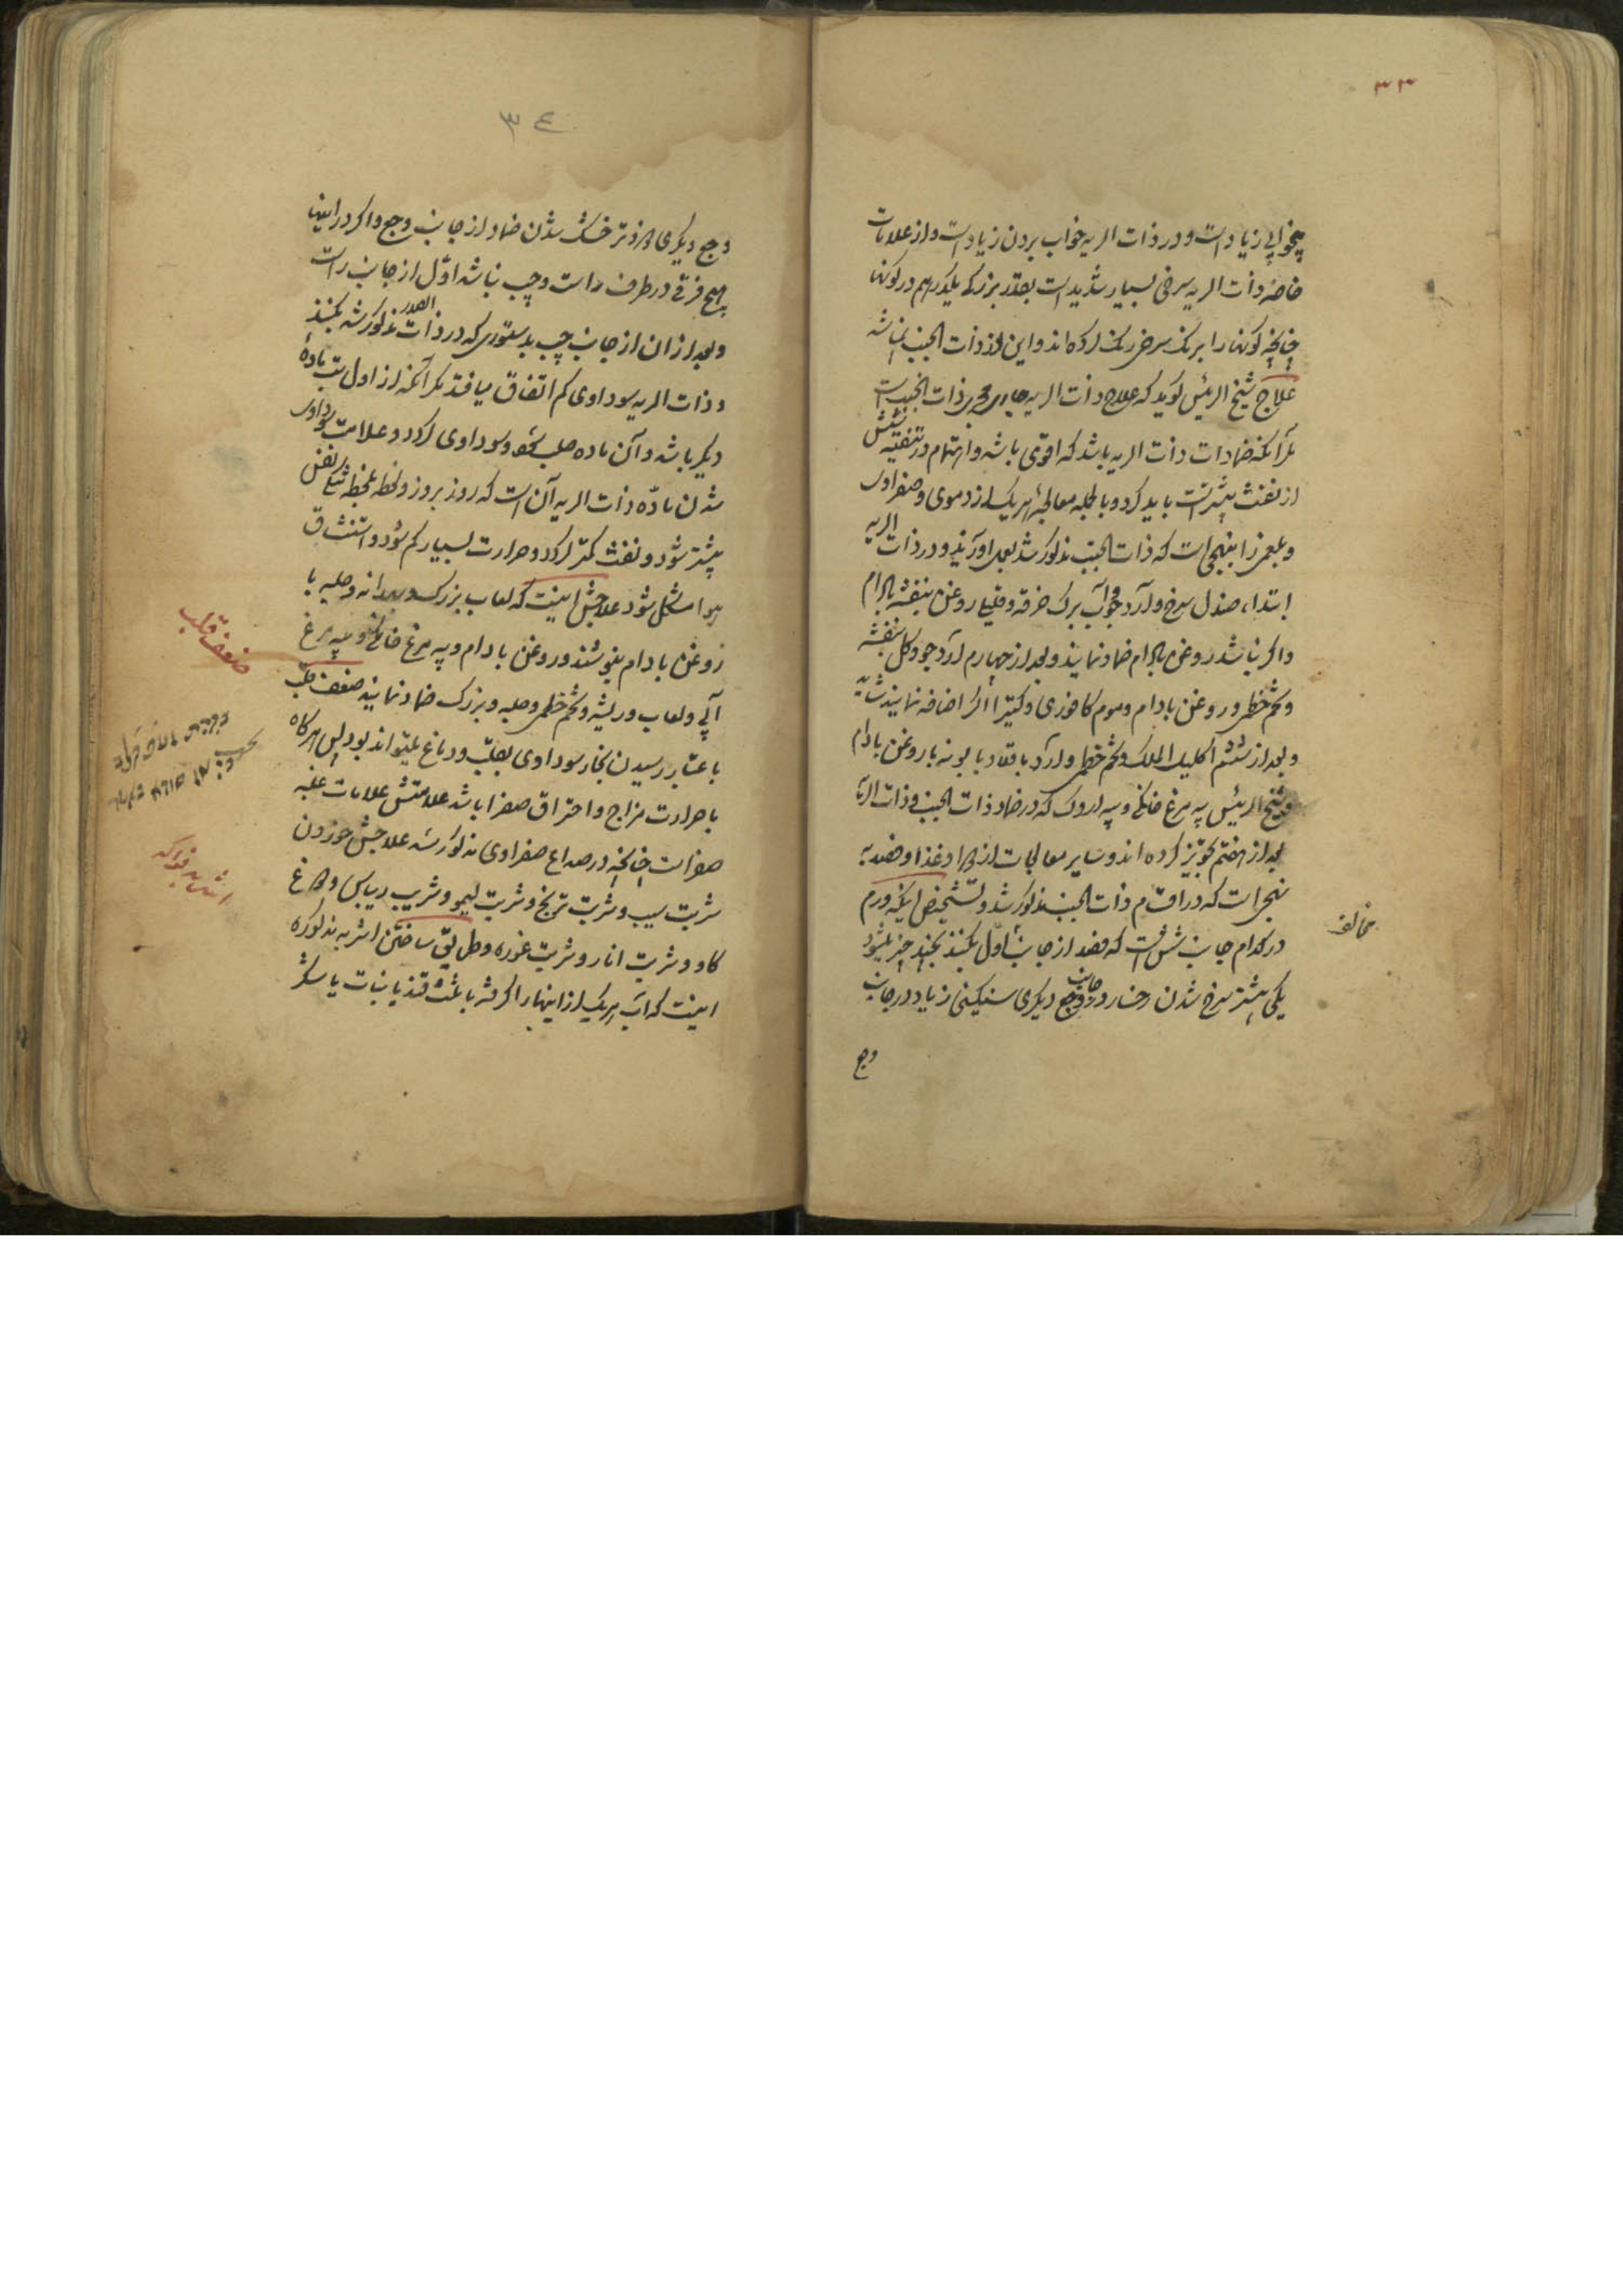 ۳۳
بیخوابی زیاد است و در ذات الریه خواب بردن زیاد است و از علامات
خاصهٔ ذات الریه سرخی بسیار شدید است بقدر بزرگی یکدرهم در گونها
چنانچه گونها را برنگ سرخی رنگ کرده اند و این در ذات الجنب نباشد
علاج شیخ الرئیس گوید که علاج ذات الریه جاری مجری ذات الجنب است
مگر آنکه ضمادات ذات الریه باشد که اقوی باشد و اهتمام در تنقیه شش
از نفث بیشتر است باید کرد و بالجمله معالجهٔ هر یک از دموی و صفراوی
و بلغمی بنهجی است که ذات الجنب مذکور شد بعمل آورند و در ذات الریه
ابتداء صندل سرخ و آرد جو و آب برگ خرفه و روغن بنفشه بادام
و اگر نباشد روغن بادام ضماد نمایند و بعد از چهارم آرد جو و گل بنفشه
و تخم خطمی و روغن بادام و موم کافوری و کتیرا اضافه نمایند
و بعد از ششم اکلیل الملک و تخم خطمی و آرد باقلا و بابونه با روغن بادام
و شیخ الرئیس پیه مرغ خانگی و پیه اردک که در ضماد ذات الجنب و ذات الریه
بعد از هفتم تجویز کرده اند و سایر معالجات از دوا و غذا و فصد به
نهجی است که در اقسام ذات الجنب مذکور شد و تشخیص اینکه ورم
در کدام جانب شش است که فصد از جانب اول بکنند بچند چیز میشود
مخالف
یکی بیشتر سرخ شدن رخسار در جانب وجع دیگری سنگینی زیاد در جانب
وجع
۳٤
وجع دیگری زودتر خشک شدن ضماد از جانب وجع و اگر در اینها
هیچ فرقی در طرف راست و چپ نباشد اول از جانب راست
و بعد از ان از جانب چپ بدستوری که در ذات الصدر مذکور شد بکنند
و ذات الریه سوداوی کم اتفاق میافتد مگر آنکه از اول بسبب مادهٔ
دیگر باشد و آن ماده صلب شود و سوداوی گردد و علامت سوداوی
شدن مادهٔ ذات الریه آن است که روز بروز و لحظه بلحظه تنگی نفس
بیشتر شود و نفث کمتر گردد و حرارت بسیار کم شود و استنشاق
هوا مشکل شود علاجش اینست که لعاب بزرک و بهدانه و حلبه با
روغن بادام بنوشند و روغن بادام و پیه مرغ خانگی و پیه مرغ
آبی و لعاب و ریشه و تخم خطمی و حلبه و بزرک ضماد نمایند ضعف قلب
ضعف قلب
باعتبار رسیدن بخار سوداوی بقلب و دماغ میتواند بود پس هرگاه
با حرارت مزاج و احتراق صفرا باشد علامتش علامات غلبه
صفراست چنانچه در صداع صفراوی مذکور شد علاجش خوردن
شربت سیب و شربت ترنج و شربت لیمو و شربت ریباس و دوغ
گاو و شربت انار و شربت غوره و طریق ساختن اشربه مذکوره
اشربه فواکه
اینست که آب هر یک از اینها را گرفته با ثلث قند یا نبات یا شکر